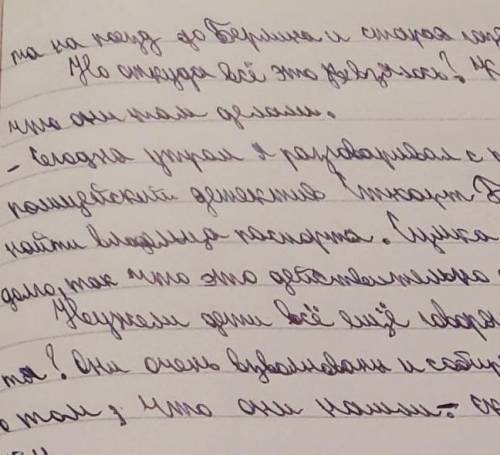 та на поезд до Берлина и старая
Но откуда всё это взялось?
что они там делали.
- Сегодня утром я разговаривал с
полицейский детектив Стюарт
найти владельца паспорта. Сумка
долго, так что это действительно
Неужели дети всё ещё говоря
та? Они очень взволнованы и собир
о том, что они нашли. - ск